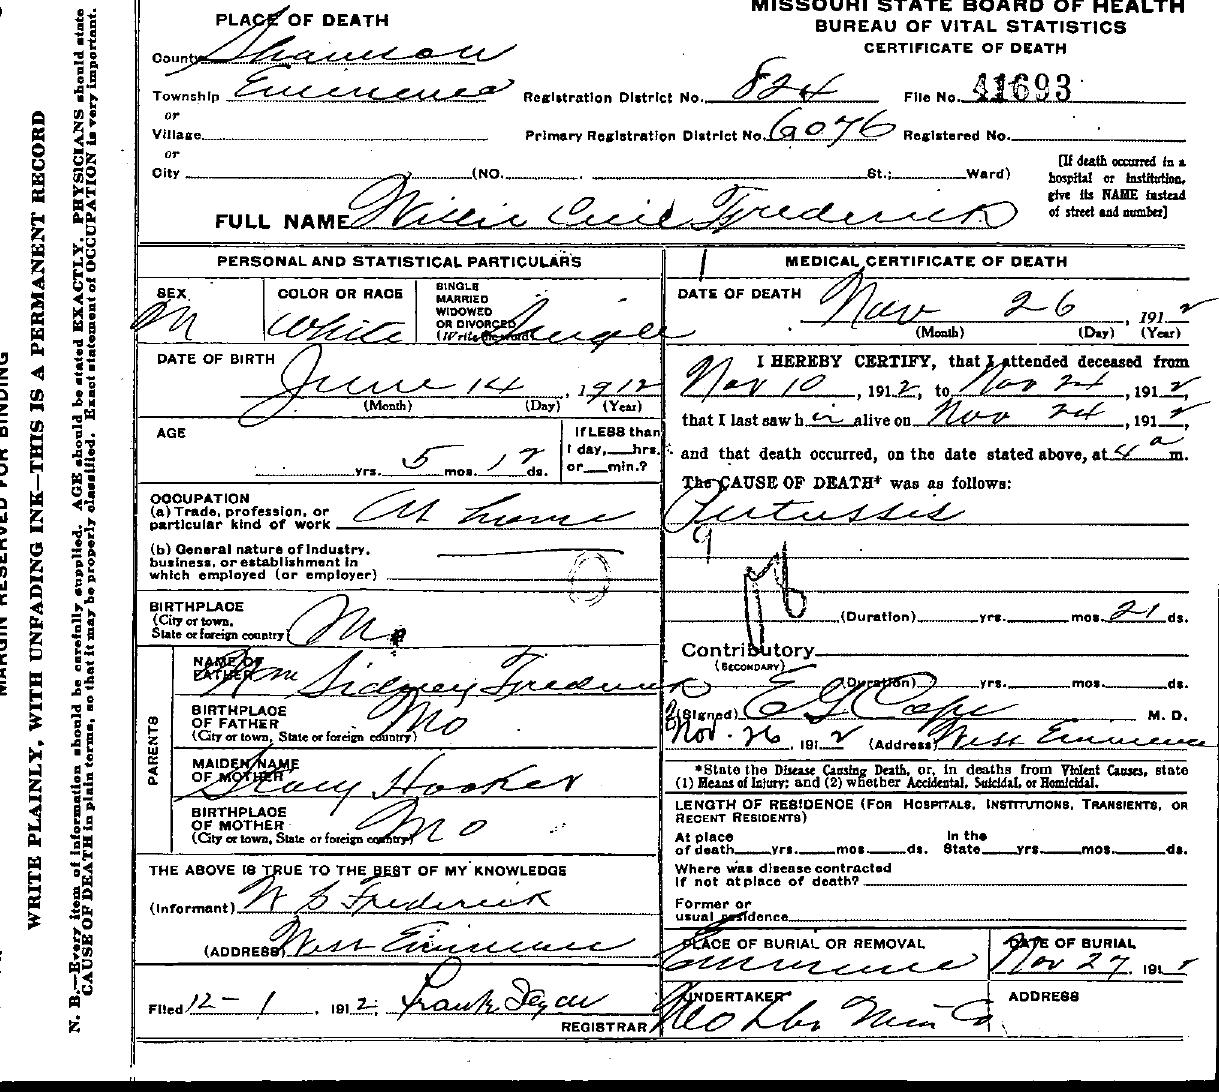 MISSOURI STATE BOARD OF HEALTH
BUREAU OF VITAL STATISTICS
CERTIFICATE OF DEATH
PLACE OF DEATH
County Shannon
Township Eminence Registration District No. 824 File No. 41693
or
Village Primary Registration District No. 6076 Registered No.
or
City (NO. St.; Ward)
[If death occurred in a
hospital or institution,
give its NAME instead
of street and number]
FULL NAME Willie Cecil Frederick
PERSONAL AND STATISTICAL PARTICULARS
SEX
M
COLOR OR RACE
White
SINGLE
MARRIED
WIDOWED
OR DIVORCED
(Write the word)
Single
DATE OF BIRTH
June 14, 1912
(Month) (Day) (Year)
AGE
yrs. 5 mos. 12 ds.
If LESS than
1 day, hrs.
or min.?
OCCUPATION
(a) Trade, profession, or
particular kind of work At home
(b) General nature of Industry,
business, or establishment in
which employed (or employer)
BIRTHPLACE
(City or town,
State or foreign country) Mo
PARENTS
NAME OF
FATHER Wm Sidney Frederick
BIRTHPLACE
OF FATHER
(City or town, State or foreign country) Mo
MAIDEN NAME
OF MOTHER Hooker
BIRTHPLACE
OF MOTHER
(City or town, State or foreign country) Mo
THE ABOVE IS TRUE TO THE BEST OF MY KNOWLEDGE
(Informant) W S Frederick
(ADDRESS) West Eminence
Filed 12-1, 1912, Frank
REGISTRAR
MEDICAL CERTIFICATE OF DEATH
DATE OF DEATH
Nov 26, 1912
(Month) (Day) (Year)
I HEREBY CERTIFY, that I attended deceased from
Nov 10, 1912, to Nov 24, 1912,
that I last saw him alive on Nov 24, 1912,
and that death occurred, on the date stated above, at 4 a m.
The CAUSE OF DEATH* was as follows:
Pertussis
9
(Duration) yrs. mos. 21 ds.
Contributory
(SECONDARY)
(Duration) yrs. mos. ds.
(Signed) E G Cope M. D.
Nov. 26, 1912 (Address) West Eminence
*State the Disease Causing Death, or, in deaths from Violent Causes, state
(1) Means of Injury; and (2) whether Accidental, Suicidal, or Homicidal.
LENGTH OF RESIDENCE (FOR HOSPITALS, INSTITUTIONS, TRANSIENTS, OR
RECENT RESIDENTS)
At place
of death yrs. mos. ds.
In the
State yrs. mos. ds.
Where was disease contracted
If not at place of death?
Former or
usual residence
PLACE OF BURIAL OR REMOVAL
Eminence
DATE OF BURIAL
Nov 27, 191
UNDERTAKER
Mo Lbr Co
ADDRESS
MARGIN RESERVED FOR BINDING
WRITE PLAINLY, WITH UNFADING INK—THIS IS A PERMANENT RECORD
N. B.—Every item of information should be carefully supplied. AGE should be stated EXACTLY. PHYSICIANS should state
CAUSE OF DEATH in plain terms, so that it may be properly classified. Exact statement of OCCUPATION is very important.